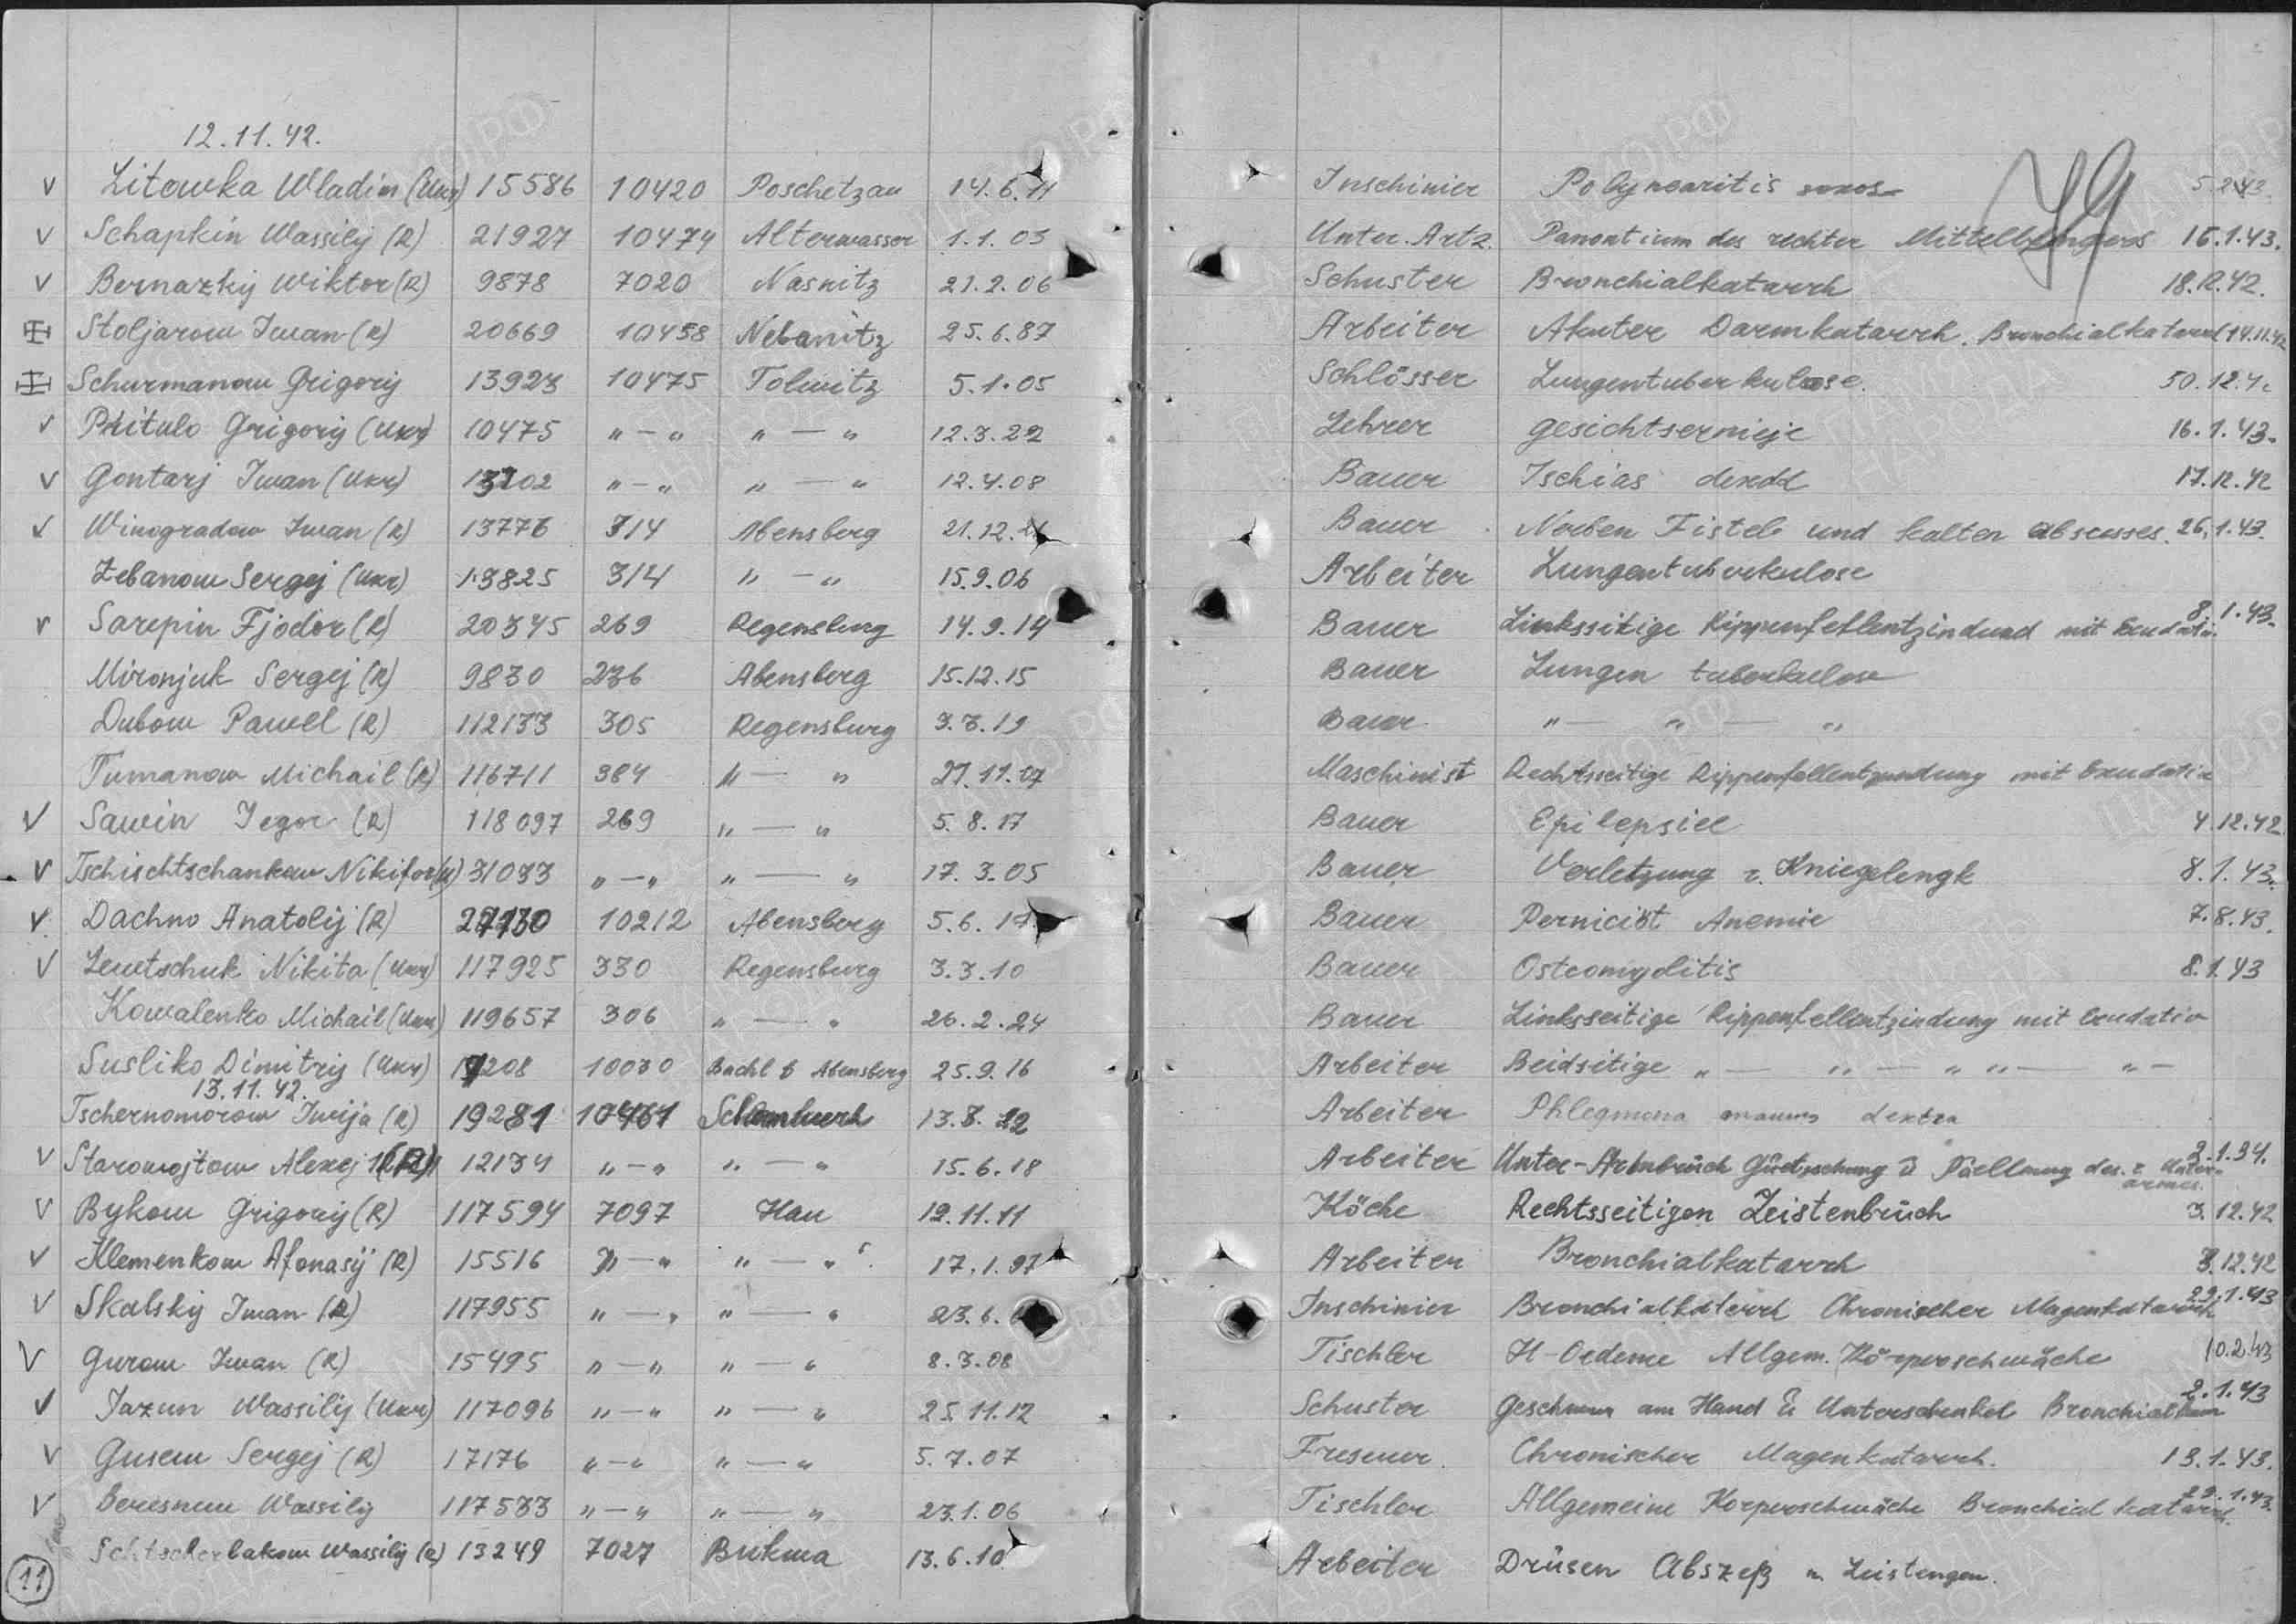 12.11.42.
v Litowka Wladim (Ukr) 15586 10420 Poschetzau 14.6.11 Inschinier Polyneuritis 5.2.43.
v Schapkin Wassilij (R) 21927 10474 Alterwasser 1.1.03 Unter. Artz. Panontium des rechter Mittelfengers 16.1.43.
v Bernazkij Wiktor (R) 9878 7020 Nasnitz 21.2.06 Schuster Bronchialkatarrh 18.12.42.
Stoljarow Iwan (R) 20669 10458 Nebanitz 25.6.87 Arbeiter Akuter Darmkatarrh. Bronchialkatarrh 14.11.42
Schurmanow Grigorij 13923 10475 Tolwitz 5.1.05 Schlösser Lungentuberkulose. 50.12.42
v Pritulo Grigorij (Ukr) 10475 " — " " — " 12.3.22 Lehrer gesichtsernieje 16.1.43.
v Gontarj Iwan (Ukr) 13202 " — " " — " 12.4.08 Bauer Ischias 17.12.42
v Winogradow Iwan (R) 13776 314 Abensberg 21.12. Bauer Norben Fistels und kalten abscesses. 26.1.43.
Zebanow Sergej (Ukr) 13825 314 " — " 15.9.06 Arbeiter Lungentuberkulose
v Sarepin Fjodor (R) 20345 269 Regensburg 14.9.14 Bauer Linkssitige Rippenfellentzindund mit Exudativ 8.1.43.
Mironjuk Sergej (R) 9830 236 Abensberg 15.12.15 Bauer Lungen tuberkulose
Dubow Pawel (R) 112133 305 Regensburg 3.3.19 Bauer " — " — "
Tumanow Michail (R) 116711 384 " — " 27.11.07 Maschinist Rechtsseitige Rippenfellentzundung mit Exudativ
v Sawin Jegor (R) 118097 269 " — " 5.8.17 Bauer Epilepsiee 4.12.42
v Tschischtschankow Nikifor (R) 31033 " — " " — " 17.3.05 Bauer Verletzung r. Kniegelengk 8.1.43.
v Dachno Anatolij (R) 27130 10212 Abensberg 5.6. Bauer Perniciöt Anemie 7.8.43.
v Lewtschuk Nikita (Ukr) 117925 330 Regensburg 3.3.10 Bauer Osteomyolitis 8.1.43
Kowalenko Michail (Ukr) 119657 306 " — " 26.2.24 Bauer Linksseitige Rippenfellentzindung mit Exudativ
Susliko Dimitrij (Ukr) 17208 10030 Bachl b Abensberg 25.9.16 Arbeiter Beidsitige " — " — " " — " —
13.11.42.
Tschernomorow Iwija (R) 19281 10461 13.8.22 Arbeiter Phlegmona manus dextra
v Starowojtow Alexej (R) 12134 " — " " — " 15.6.18 Arbeiter Unter-Armbruch des r. Unterarmes. 2.1.34.
v Bykow Grigorij (R) 117594 7097 Hau 12.11.11 Köche Rechtsseitigen Leistenbruch 3.12.42
v Klemenkow Afonasij (R) 15516 " — " " — " 17.1.97 Arbeiter Bronchialkatarrh 3.12.42
v Skalskij Iwan (R) 117955 " — " " — " 23.6. Inschinier Bronchialkatarrh Chronischer Magenkatarrh 29.1.43
v Gurow Iwan (R) 15495 " — " " — " 8.3.08 Tischler H-Oedeme Allgem. Körperschwäche 10.2.43
v Jazun Wassilij (Ukr) 117096 " — " " — " 25.11.12 Schuster am Hand Unterschenkel 2.1.43
v Gusew Sergej (R) 17176 " — " " — " 5.7.07 Fresener. Chronischer Magenkatarrh. 13.1.43.
v Beresnew Wassilij 117533 " — " " — " 23.1.06 Tischler Allgemeine Korperschwäche Bronchial katarrh. 29.1.43.
Schtscherbakow Wassilij (R) 13249 7027 Bukwa 13.6.10 Arbeiter Drüsen Abszeß Leistengen.
11